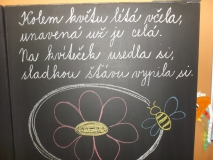 Kolem květu létá včela,
unavená už je celá.
Na kvíteček usedla si,
sladkou šťávu vypila si.